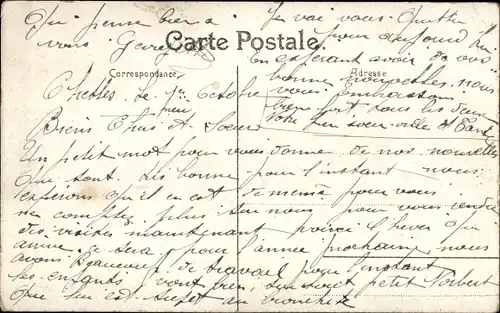 Qui pense bien a
vous
Carte Postale.
Correspondance
Adresse
Chelles le 1er Octobre
Biens Chers et Soeur
Un petit mot pour vous donner de nos nouvelles
Qui sont des bonne pour l'instant nous
espérons qu'il en est de meme pour vous
ne comptez plus sur nous pour vous rendre
des visites maintenant voici l'hiver qui
arrive ce sera pour l'année prochaine nous
avons beaucoup de travail pour l'instant
les enfants vont bien, petit Norbert
Que lui est sujet au bronchite
Je vai vous Quitter
pour aujourd hui
en esperant avoir de vos
bonne nouvelles nous
vous embrassons
bien fort tous les deux